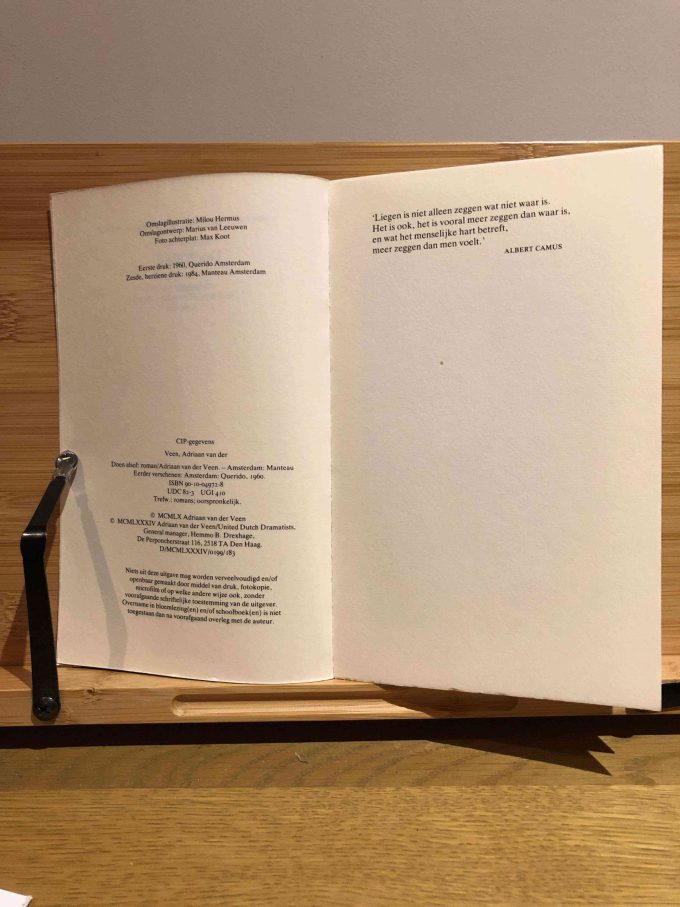 Omslagillustratie: Milou Hermus
Omslagontwerp: Marius van Leeuwen
Foto achterplat: Max Koot
Eerste druk: 1960, Querido Amsterdam
Zesde, herziene druk: 1984, Manteau Amsterdam
CIP-gegevens
Veen, Adriaan van der
Doen alsof: roman/Adriaan van der Veen. – Amsterdam: Manteau
Eerder verschenen: Amsterdam: Querido, 1960.
ISBN 90-10-04972-8
UDC 82-3 UGI 410
Trefw.: romans; oorspronkelijk.
© MCMLX Adriaan van der Veen
© MCMLXXXIV Adriaan van der Veen/United Dutch Dramatists,
General manager, Hemmo B. Drexhage,
De Perponcherstraat 116, 2518 TA Den Haag.
D/MCMLXXXIV/0199/183
Niets uit deze uitgave mag worden verveelvoudigd en/of
openbaar gemaakt door middel van druk, fotokopie,
microfilm of op welke andere wijze ook, zonder
voorafgaande schriftelijke toestemming van de uitgever.
Overname in bloemlezing(en) en/of schoolboek(en) is niet
toegestaan dan na voorafgaand overleg met de auteur.
'Liegen is niet alleen zeggen wat niet waar is.
Het is ook, het is vooral meer zeggen dan waar is,
en wat het menselijke hart betreft,
meer zeggen dan men voelt.'
ALBERT CAMUS